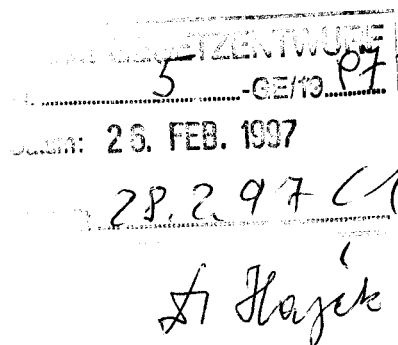 GESETZENTWURF
5 -GE/19 97
Datum: 26. FEB. 1997
28.2.97
Dr Hajek